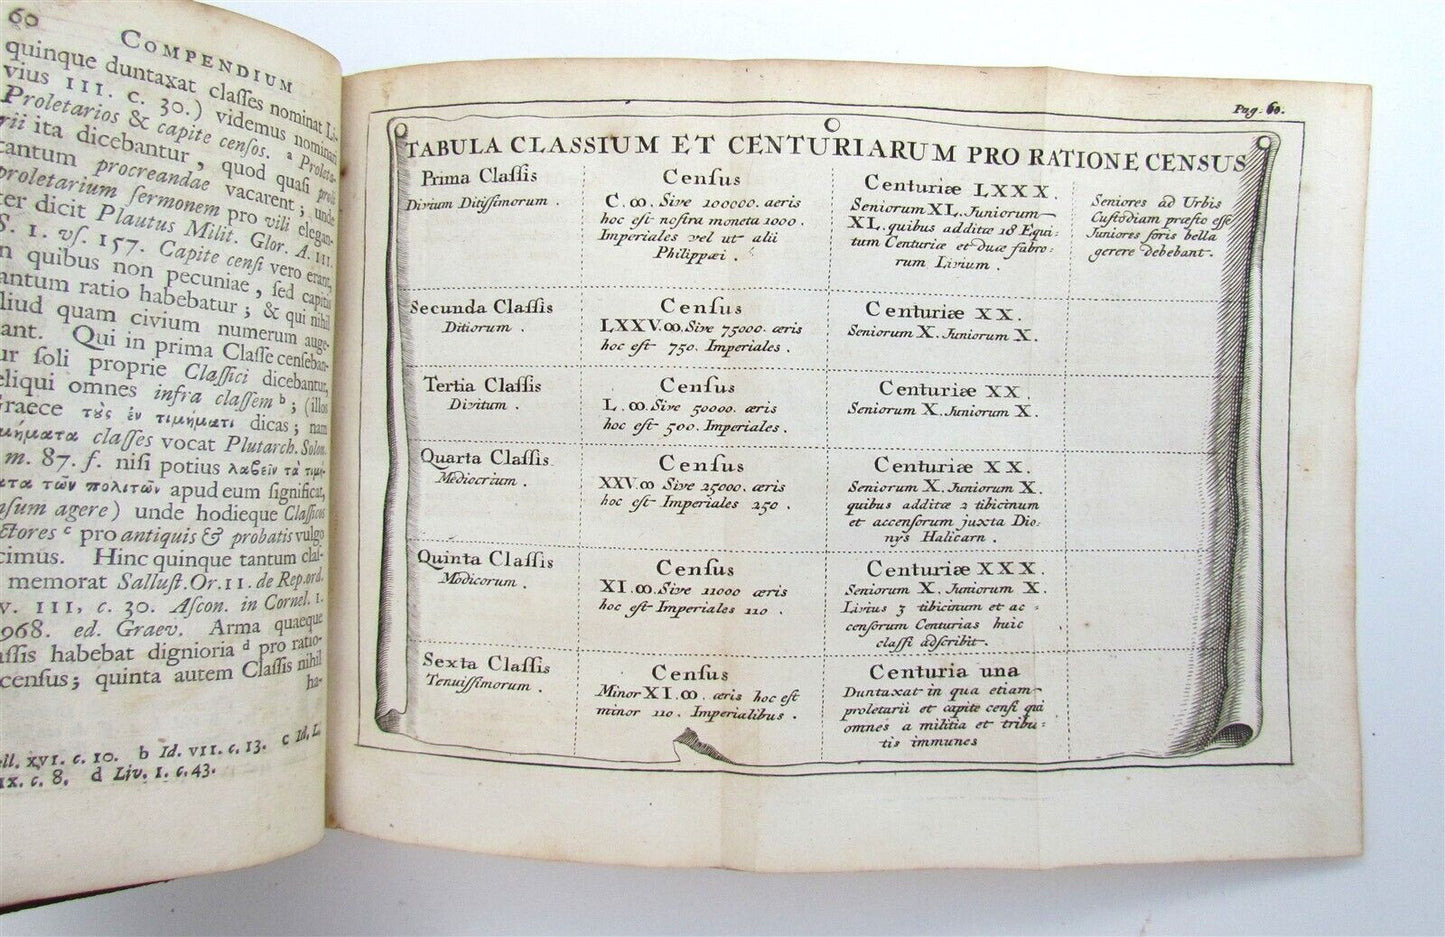 60 COMPENDIUM
quinque duntaxat claſſes nominat Li-
vius III. c. 30.) videmus nominari
Proletarios & capite cenſos. a Proleta-
rii ita dicebantur, quod quaſi proli
tantum procreandae vacarent; unde
proletarium ſermonem pro vili elegan-
ter dicit Plautus Milit. Glor. A. III.
S. 1. vſ. 157. Capite cenſi vero erant,
in quibus non pecuniae, ſed capitis
tantum ratio habebatur; & qui nihil
aliud quam civium numerum auge-
bant. Qui in prima Claſſe cenſeban-
ur ſoli proprie Claſſici dicebantur,
eliqui omnes infra claſſem b; (illos
Graece τὸς ἐν τιμήματι dicas; nam
μήματα claſſes vocat Plutarch. Solon.
m. 87. f. niſi potius λαβεῖν τὰ τιμή-
ατα τῶν πολιτῶν apud eum ſignificat,
nſum agere) unde hodieque Claſſicos
ctores c pro antiquis & probatis vulgo
cimus. Hinc quinque tantum claſ-
memorat Salluſt. Or. II. de Rep. ord.
v. III, c. 30. Aſcon. in Cornel. I.
968. ed. Graev. Arma quaeque
aſſis habebat dignioria d pro ratio-
cenſus; quinta autem Claſſis nihil
ha-
ll. XVI. c. 10. b Id. VII. c. 13. c Id. L.
IX. c. 8. d Liv. I. c. 43.
Pag. 60.
TABULA CLASSIUM ET CENTURIARUM PRO RATIONE CENSUS
Prima Claſſis
Divium Ditiſſimorum.
Cenſus
C.∞. Sive 100000. æris
hoc eſt noſtra moneta 1000.
Imperiales vel ut alii
Philippæi.
Centuriæ LXXX.
Seniorum XL. Juniorum
XL. quibus additæ 18 Equi:
tum Centuriæ et duæ fabro:
rum Livium.
Seniores ad Urbis
Cuſtodiam præſto eſſe
Juniores foris bella
gerere debebant.
Secunda Claſſis
Ditiorum.
Cenſus
LXXV.∞. Sive 75000. æris
hoc eſt 750. Imperiales.
Centuriæ XX.
Seniorum X. Juniorum X.
Tertia Claſſis
Divitum.
Cenſus
L.∞. Sive 50000. æris
hoc eſt 500. Imperiales.
Centuriæ XX.
Seniorum X. Juniorum X.
Quarta Claſſis
Mediocrium.
Cenſus
XXV.∞ Sive 25000. æris
hoc eſt Imperiales 250.
Centuriæ XX.
Seniorum X. Juniorum X.
quibus additæ 2 tibicinum
et accenſorum juxta Dio:
nyſ Halicarn.
Quinta Claſſis
Modicorum.
Cenſus
XI.∞. Sive 11000 æris
hoc eſt Imperiales 110.
Centuriæ XXX.
Seniorum X. Juniorum X.
Livius 3 tibicinum et ac:
cenſorum Centurias huic
claſſi adſcribit.
Sexta Claſſis
Tenuiſſimorum.
Cenſus
Minor XI.∞. æris hoc eſt
minor 110. Imperialibus.
Centuria una
Duntaxat in qua etiam
proletarii et capite cenſi qui
omnes a militia et tribu:
tis immunes